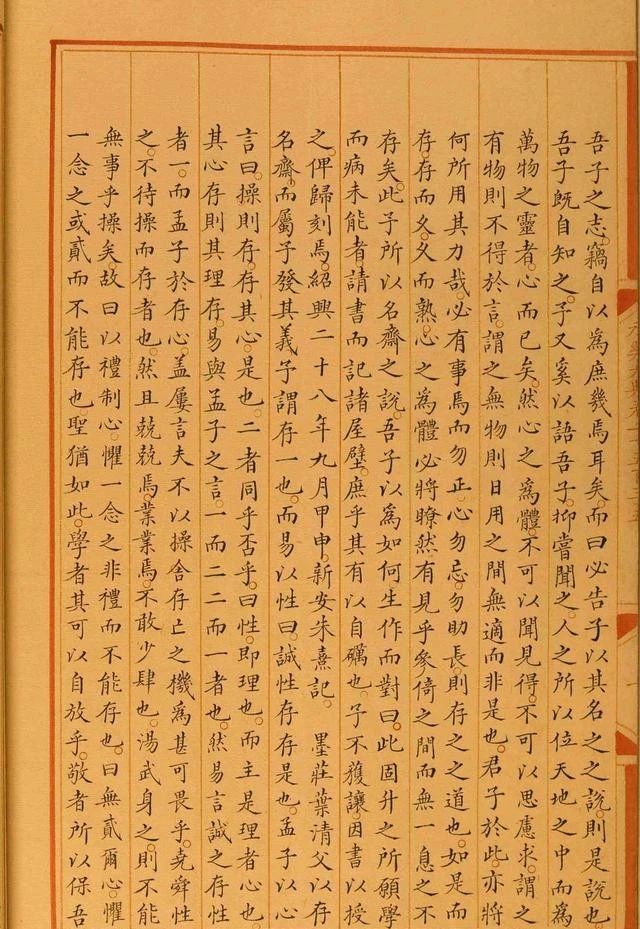 吾子之志。竊自以為庶幾焉耳矣。而曰必告子以其名之之說。則是說也。
吾子既自知之。予又奚以語吾子。抑嘗聞之。人之所以位天地之中而為
萬物之靈者。心而已矣。然心之為體。不可以聞見得。不可以思慮求。謂之
有物則不得於言。謂之無物則日用之間無適而非是也。君子於此。亦將
何所用其力哉。必有事焉而勿正。心勿忘。勿助長。則存之之道也。如是而
存。存而久。久而熟。心之為體必將瞭然有見乎參倚之間而無一息之不
存矣。此予所以名齋之說。吾子以為如何。生作而對曰。此固升之所願學
而病未能者。請書而記諸屋壁。庶乎其有以自礪也。予不獲讓。因書以授
之。俾歸刻焉。紹興二十八年九月甲申。新安朱熹記。　墨莊葉清父以存
名齋。而屬予發其義。予謂存一也。而易以性曰。誠性存存是也。孟子以心
言曰。操則存。存其心。是也。二者同乎否乎。曰性。即理也。而主是理者心也。
其心存則其理存。易與孟子之言。一而二二而一者也。然易言誠之存性
者一。而孟子於存心。盖屢言夫不以操舍存亡之機為甚可畏乎。堯舜性
之。不待操而存者也。然且兢兢焉。業業焉。不敢少肆也。湯武身之。則不能
無事乎操矣。故曰以禮制心。懼一念之非禮而不能存也。曰無貳爾心。懼
一念之或貳而不能存也聖猶如此。學者其可以自放乎。敬者所以保吾